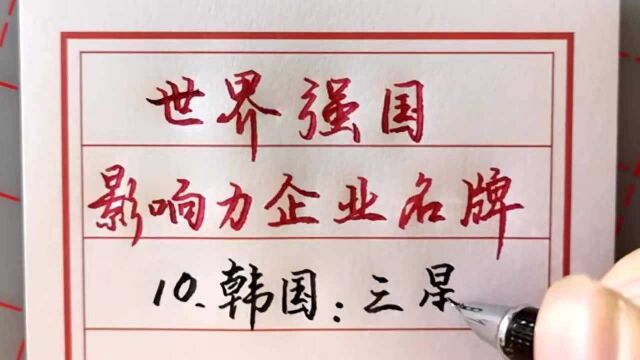 世界强国
影响力企业名牌
10.韩国:三星